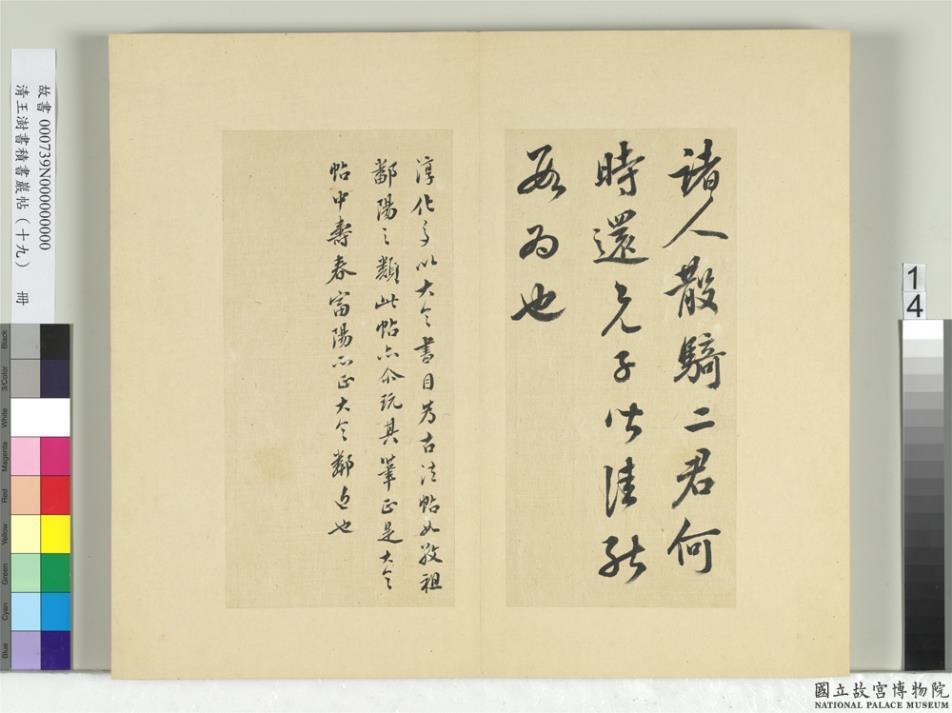 諸人散騎二君何
時還兄子皆佳
為也
淳化多以大令書目為古法帖如敬祖
鄱陽之類此帖亦介玩其筆正是大令
帖中壽春富陽正大令鄰也
故書 000739N000000000
清王澍書積書巖帖（十九） 冊
14
Black
3/Color
White
Magenta
Red
Yellow
Green
Cyan
Blue
國立故宮博物院
NATIONAL PALACE MUSEUM